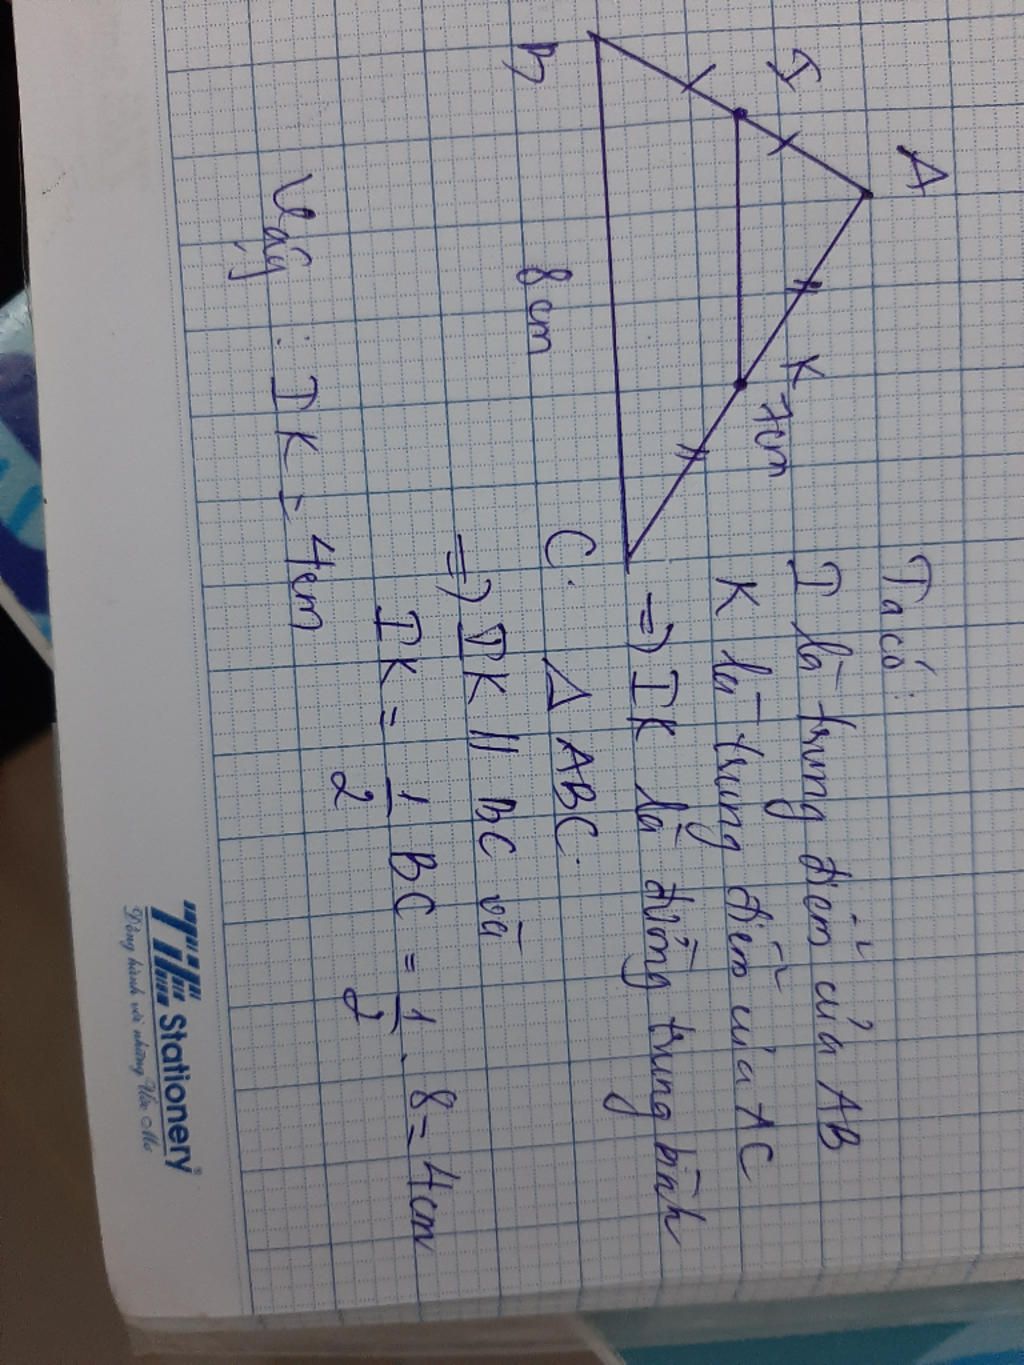 A
I
K
7cm
B
8cm
C.
Ta có:
I là trung điểm của AB
K là trung điểm của AC
=> IK là đường trung bình
Δ ABC.
=> IK // BC và
IK = 1/2 BC = 1/2 . 8 = 4cm
Vậy : IK = 4cm
Stationery®
Đồng hành với những Ước Mơ